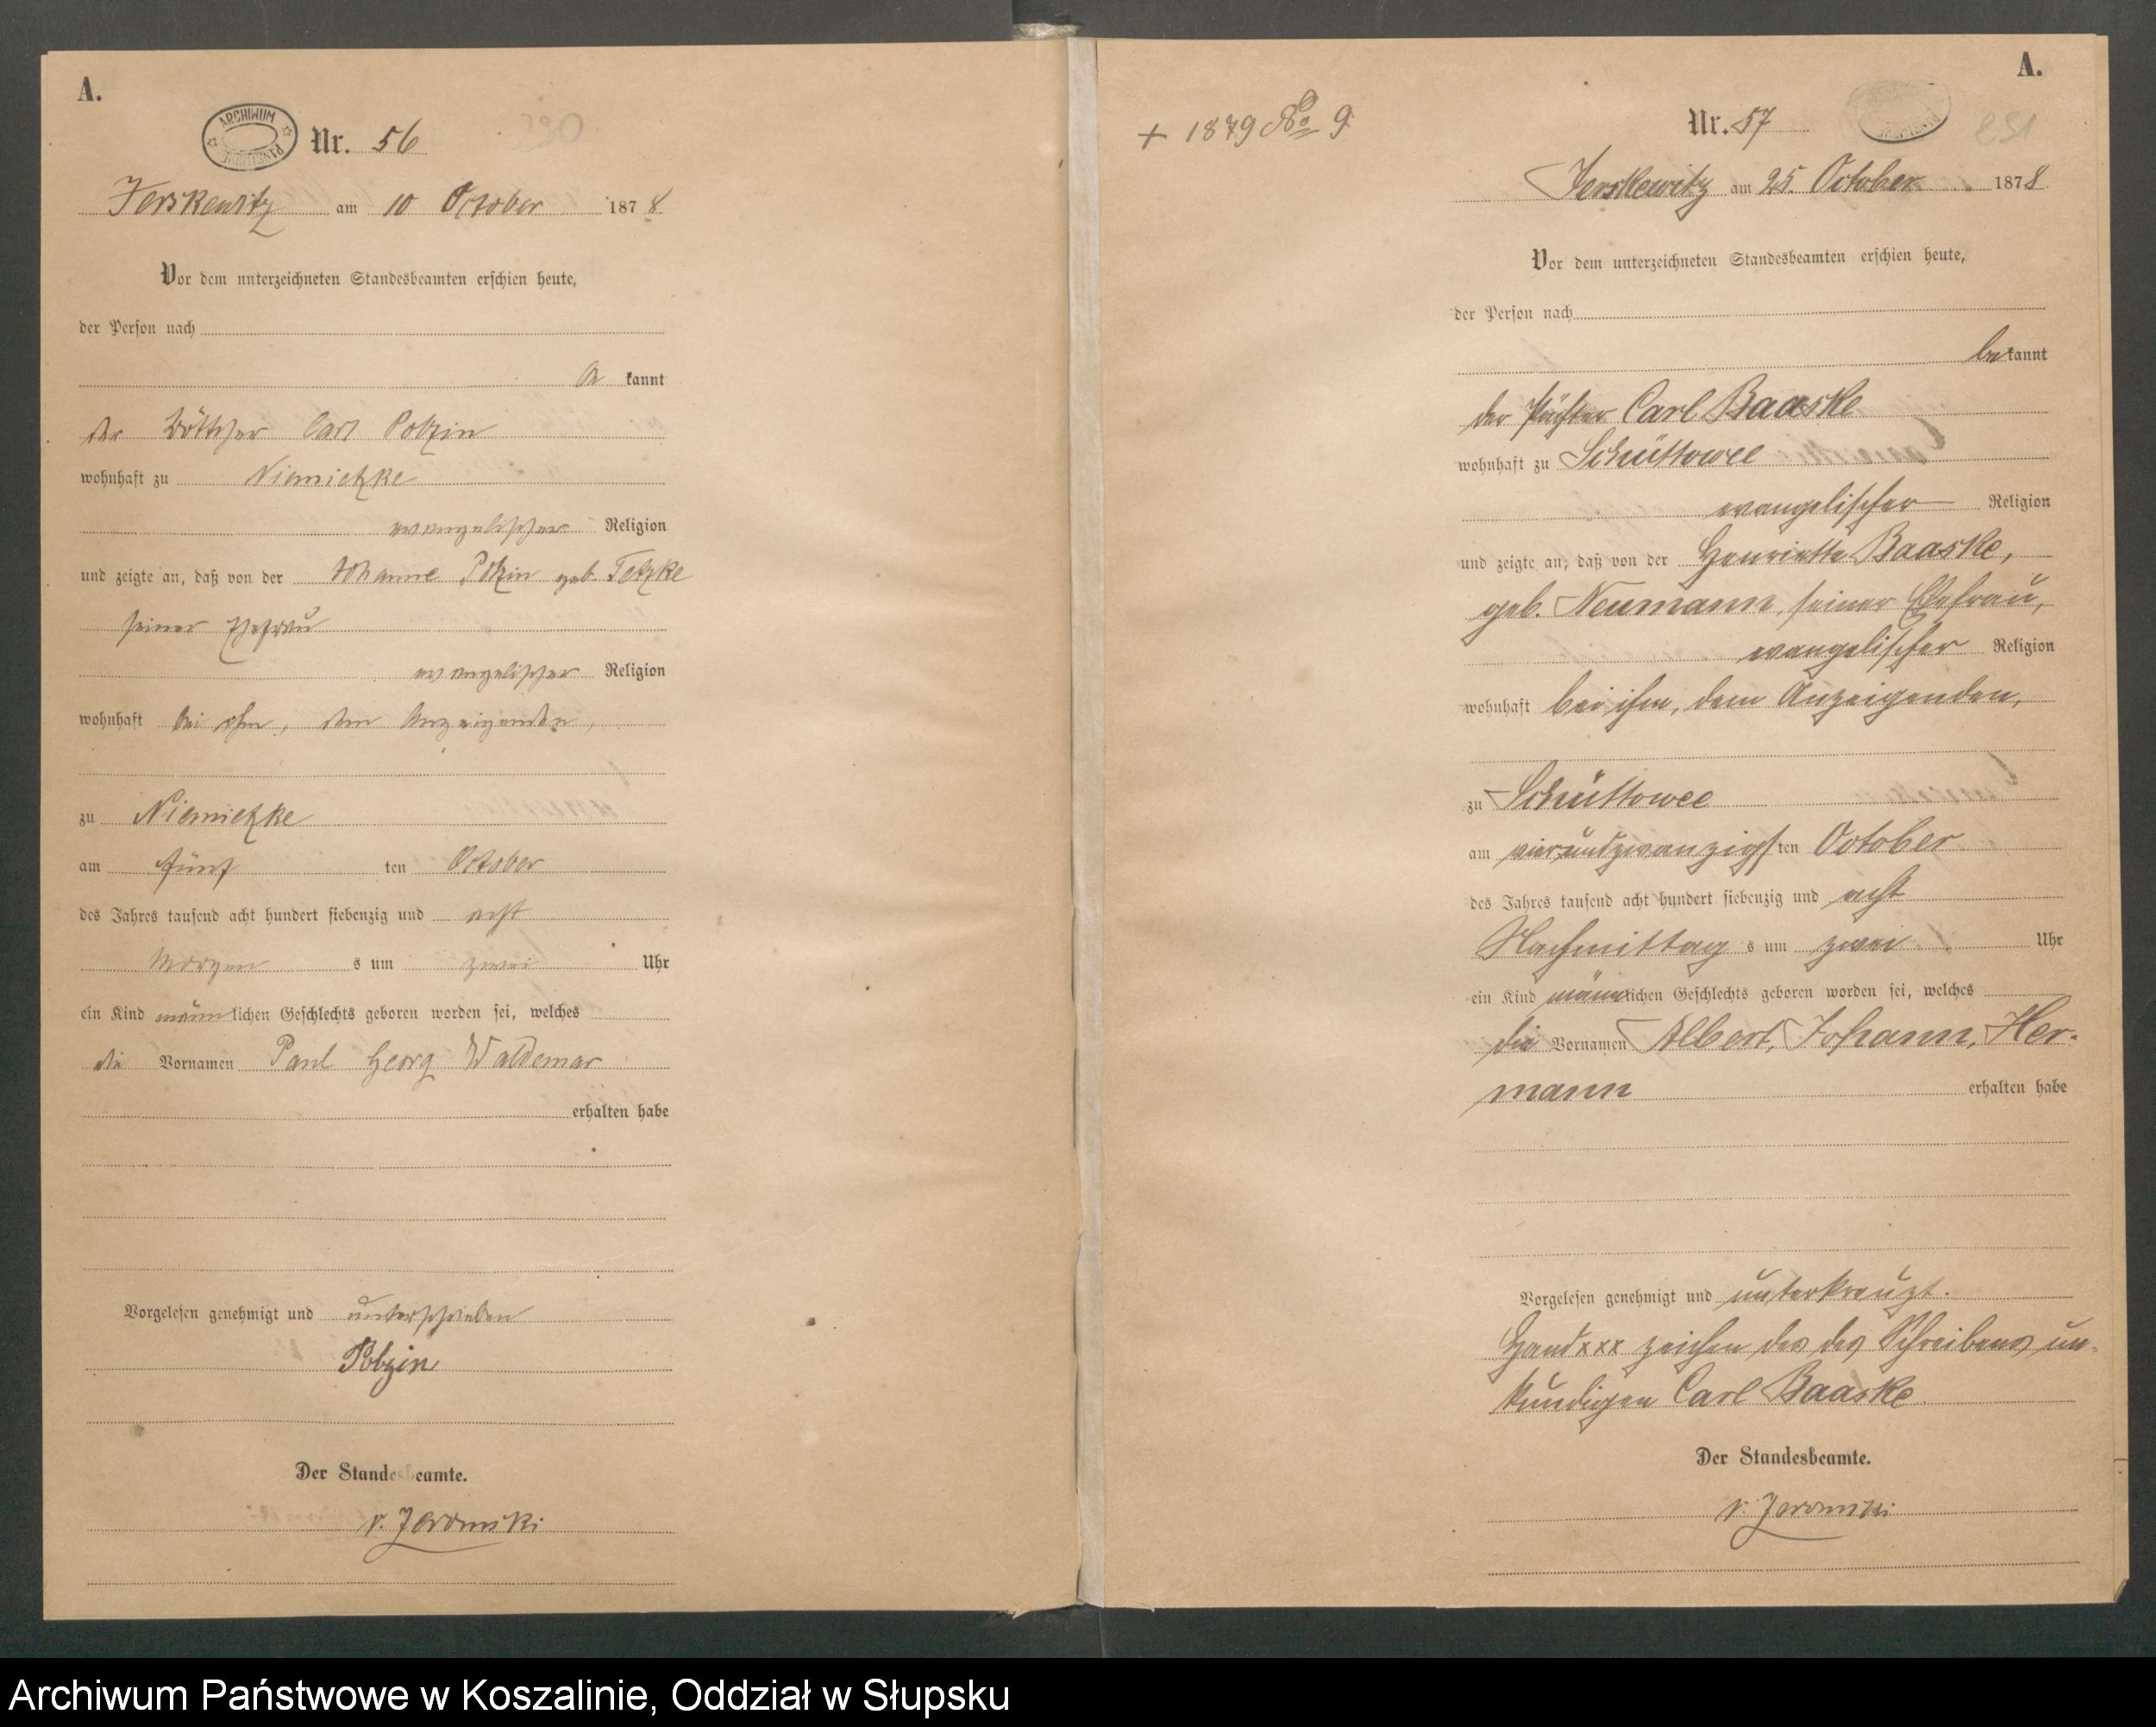 A.
ARCHIWUM PAŃSTWOWE
Nr. 56
Jerskewitz am 10 October 1878
Vor dem unterzeichneten Standesbeamten erschien heute,
der Person nach
be kannt
der Böttcher Carl Polzin
wohnhaft zu Niemietzke
evangelischer Religion
und zeigte an, daß von der Johanne Polzin geb. Tetzke
seiner Ehefrau
evangelischer Religion
wohnhaft bei ihm, dem Anzeigenden,
zu Niemietzke
am fünf ten October
des Jahres tausend acht hundert siebenzig und acht
Morgen s um zwei Uhr
ein Kind männlichen Geschlechts geboren worden sei, welches
die Vornamen Paul Georg Waldemar
erhalten habe
Vorgelesen genehmigt und unterschrieben
Polzin
Der Standesbeamte.
v. Jeromski
A.
+ 1879 No 9
Nr. 57
231
Jerskewitz am 25. October 1878
Vor dem unterzeichneten Standesbeamten erschien heute,
der Person nach
bekannt
der Pächter Carl Baaske
wohnhaft zu Schüttowee
evangelischer Religion
und zeigte an, daß von der Henriette Baaske,
geb. Neumann, seiner Ehefrau,
evangelischer Religion
wohnhaft bei ihm, dem Anzeigenden,
zu Schüttowee
am vierundzwanzigsten October
des Jahres tausend acht hundert siebenzig und acht
Nachmittag s um zwei Uhr
ein Kind männlichen Geschlechts geboren worden sei, welches
die Vornamen Albert, Johann, Her-
mann erhalten habe
Vorgelesen genehmigt und unterkreuzt.
Handxxxzeichen des des Schreibens un-
kundigen Carl Baaske.
Der Standesbeamte.
v. Jeromski
Archiwum Państwowe w Koszalinie, Oddział w Słupsku